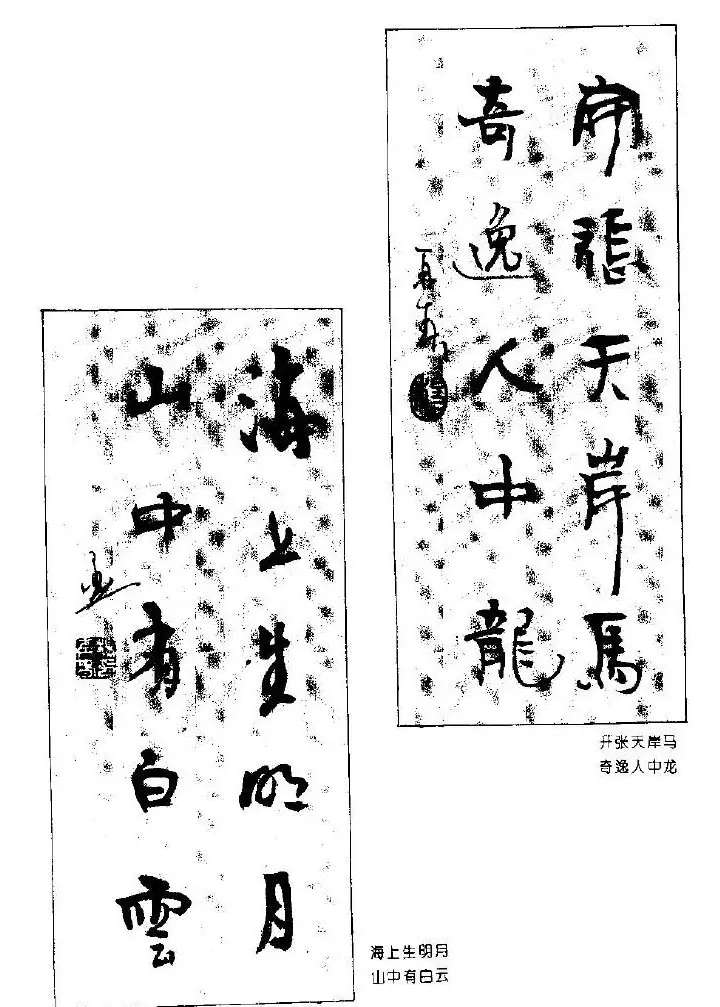 開張天岸馬
奇逸人中龍
开张天岸马
奇逸人中龙
海上生明月
山中有白雲
海上生明月
山中有白云